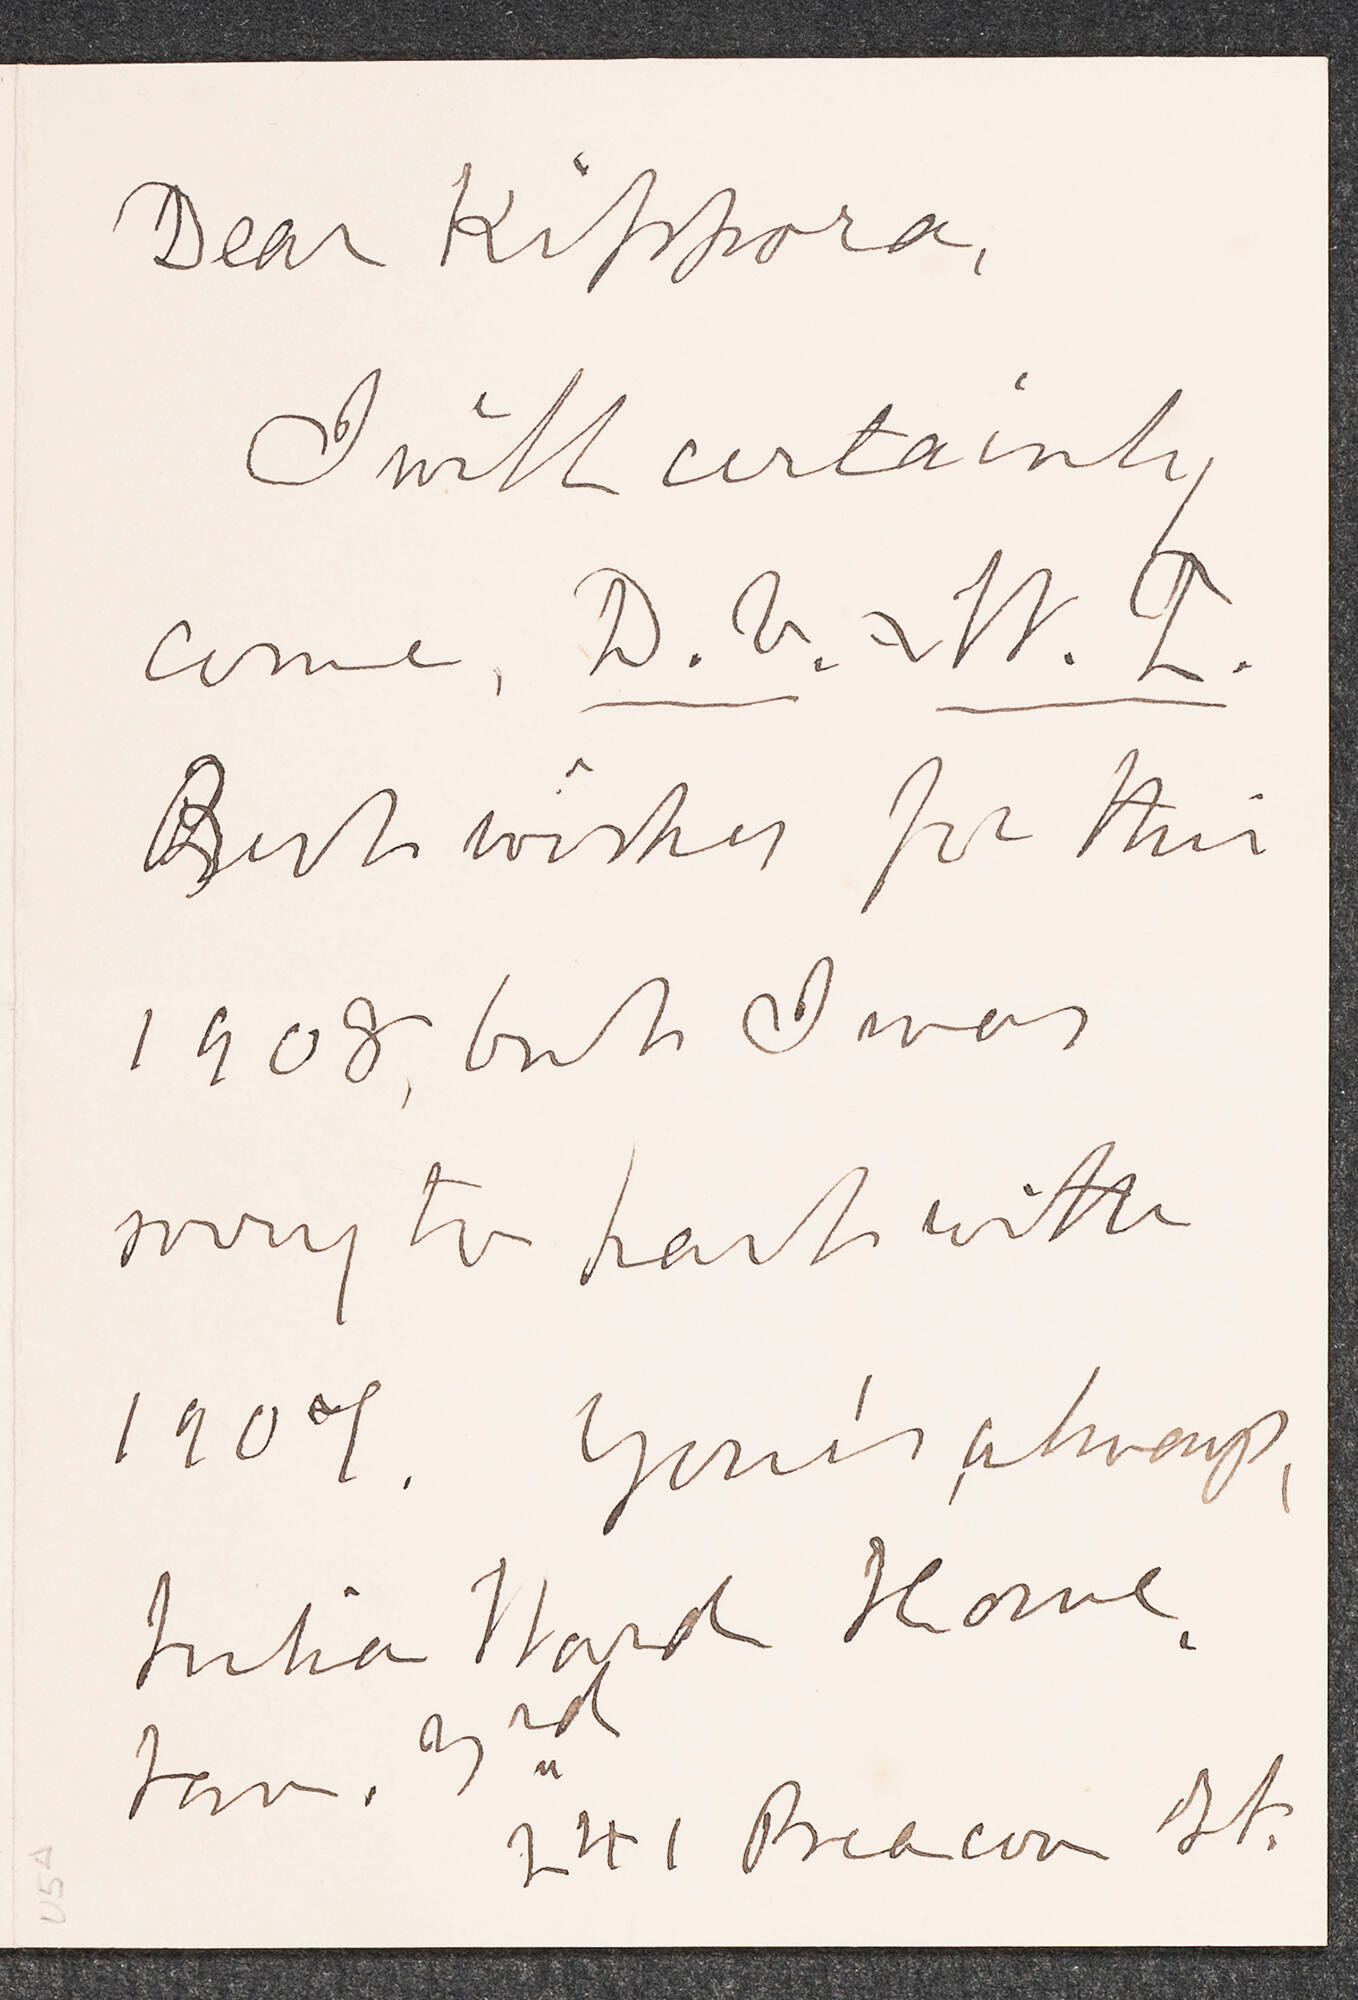 Dear Kippora,
I will certainly
come, D. V. & W. P.
Best wishes for this
1908, but I was
sorry to part with
1907. Your's always,
Julia Ward Howe.
Jan. 3rd
241 Beacon St.
USA